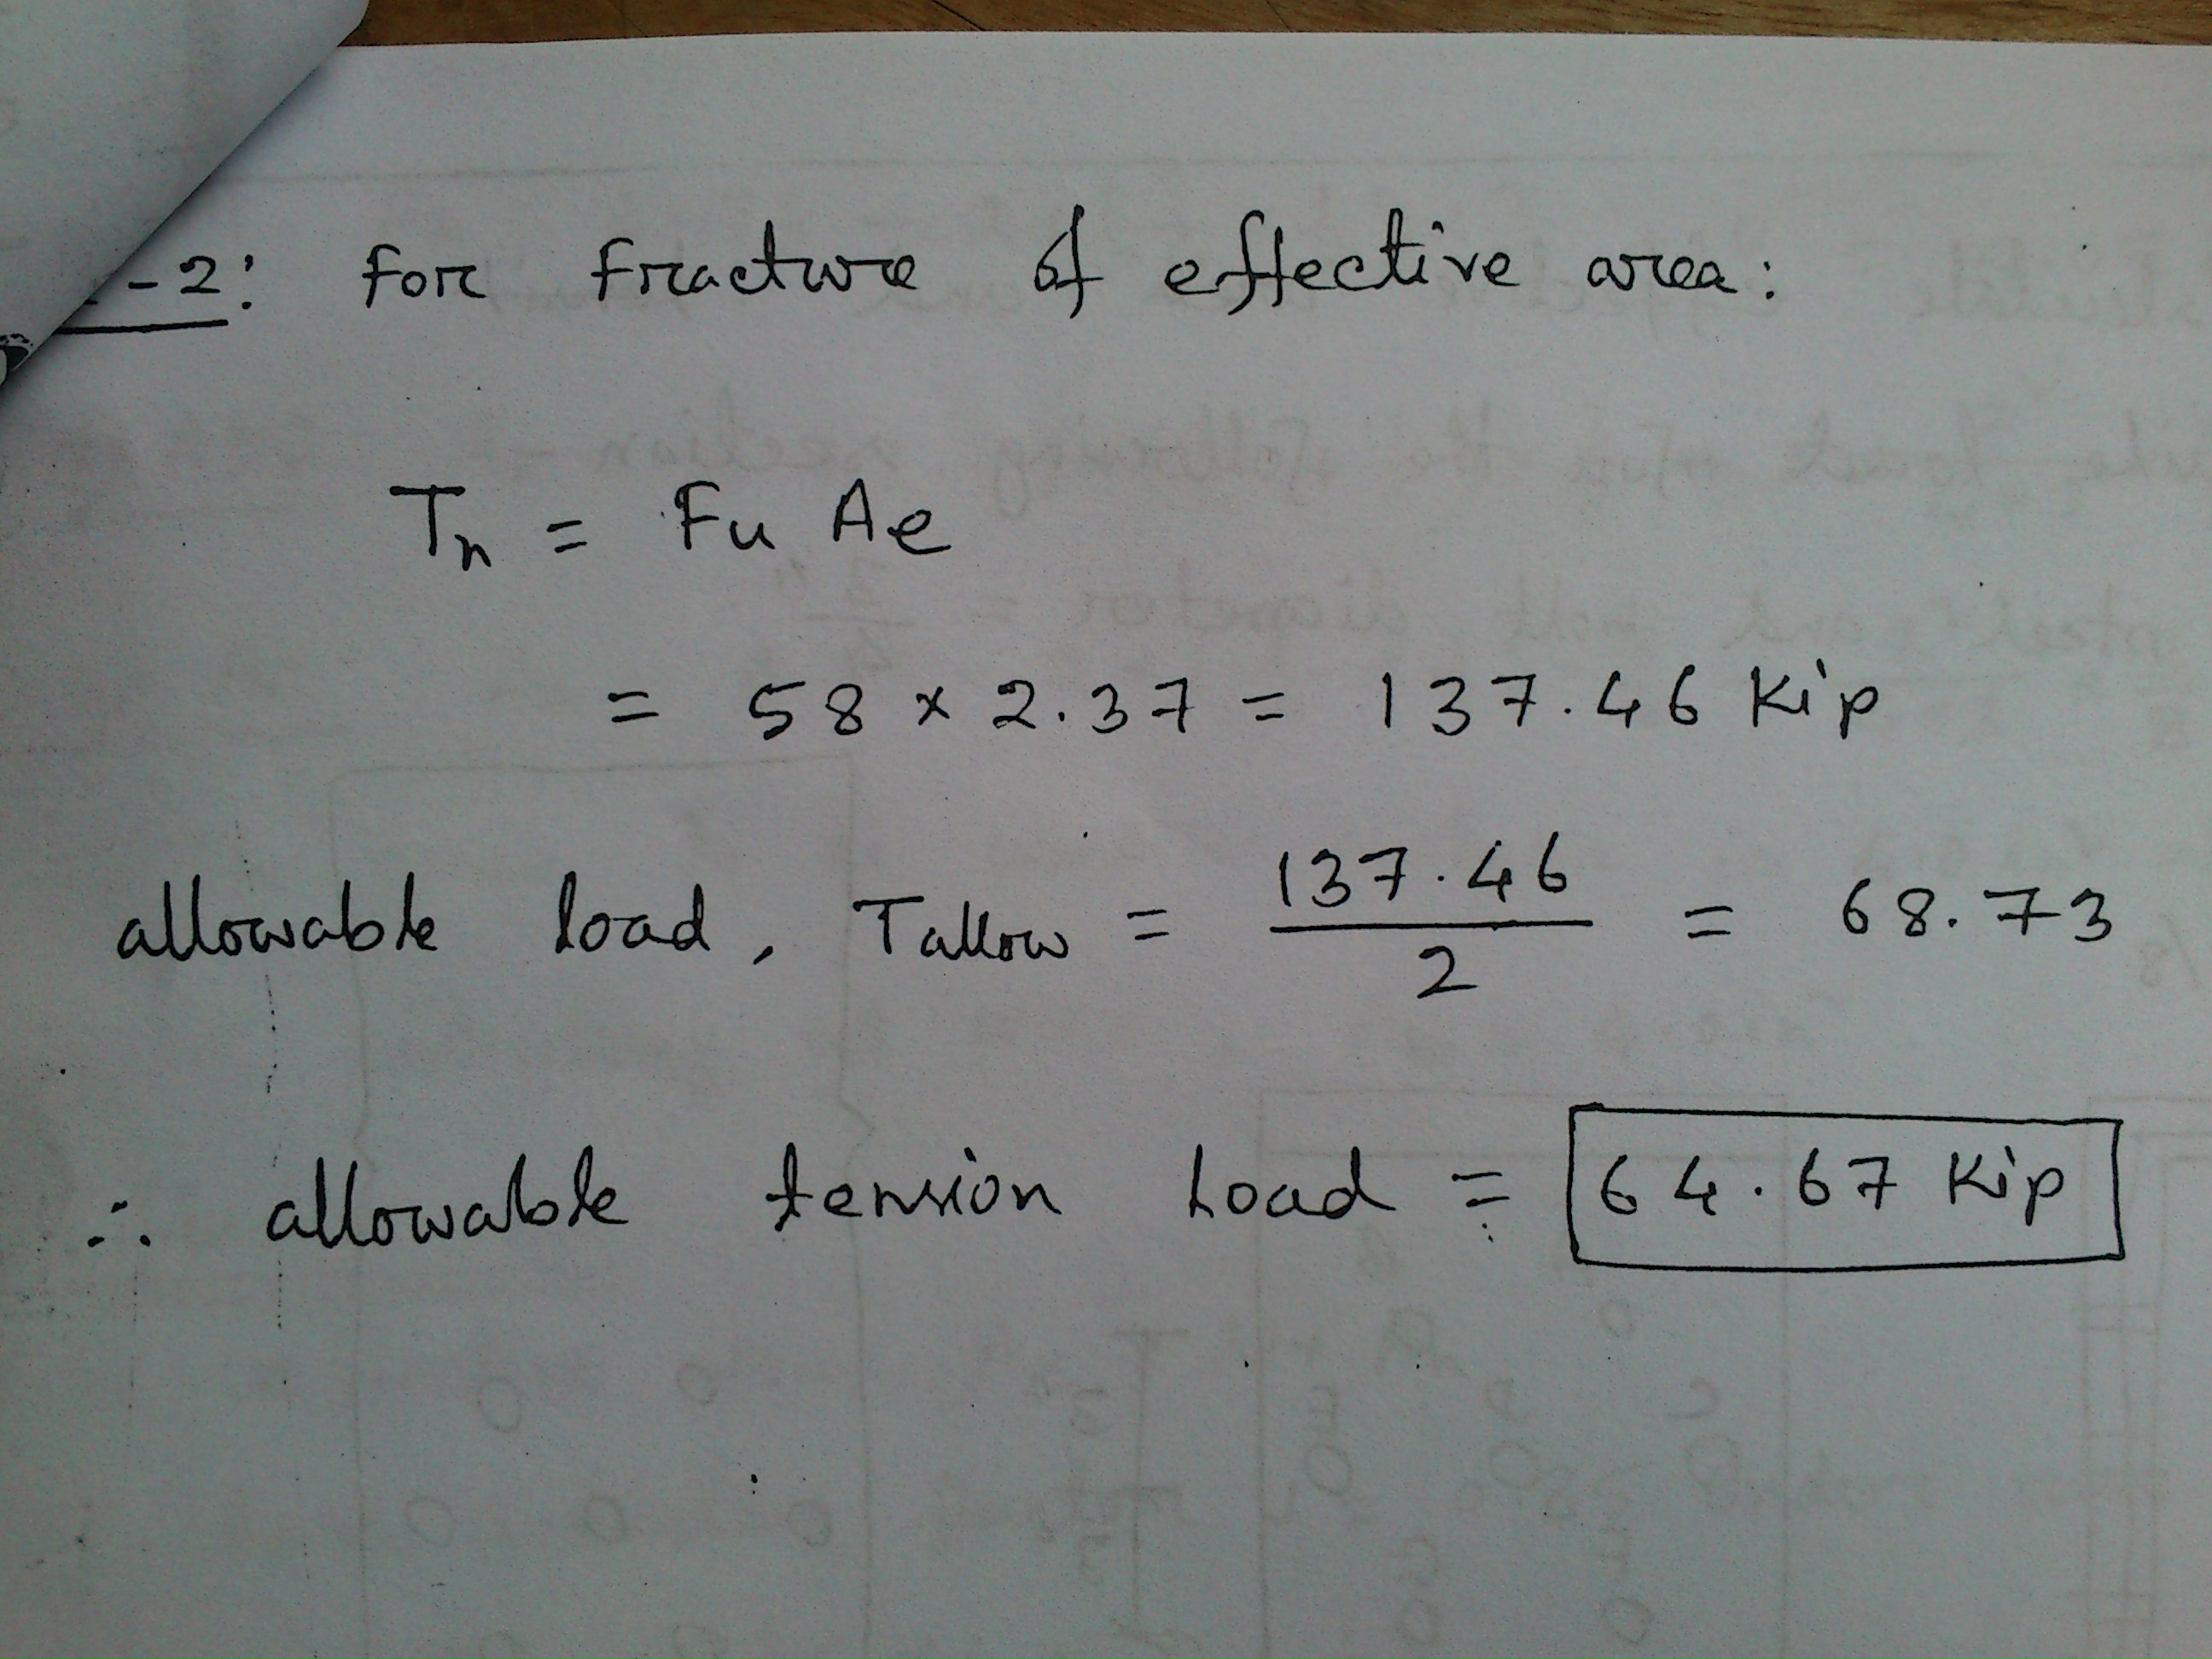 -2: for fracture of effective area:
Tn = Fu Ae
= 58 × 2.37 = 137.46 Kip
allowable load, Tallow = 137.46 / 2 = 68.73
∴ allowable tension Load = 64.67 Kip